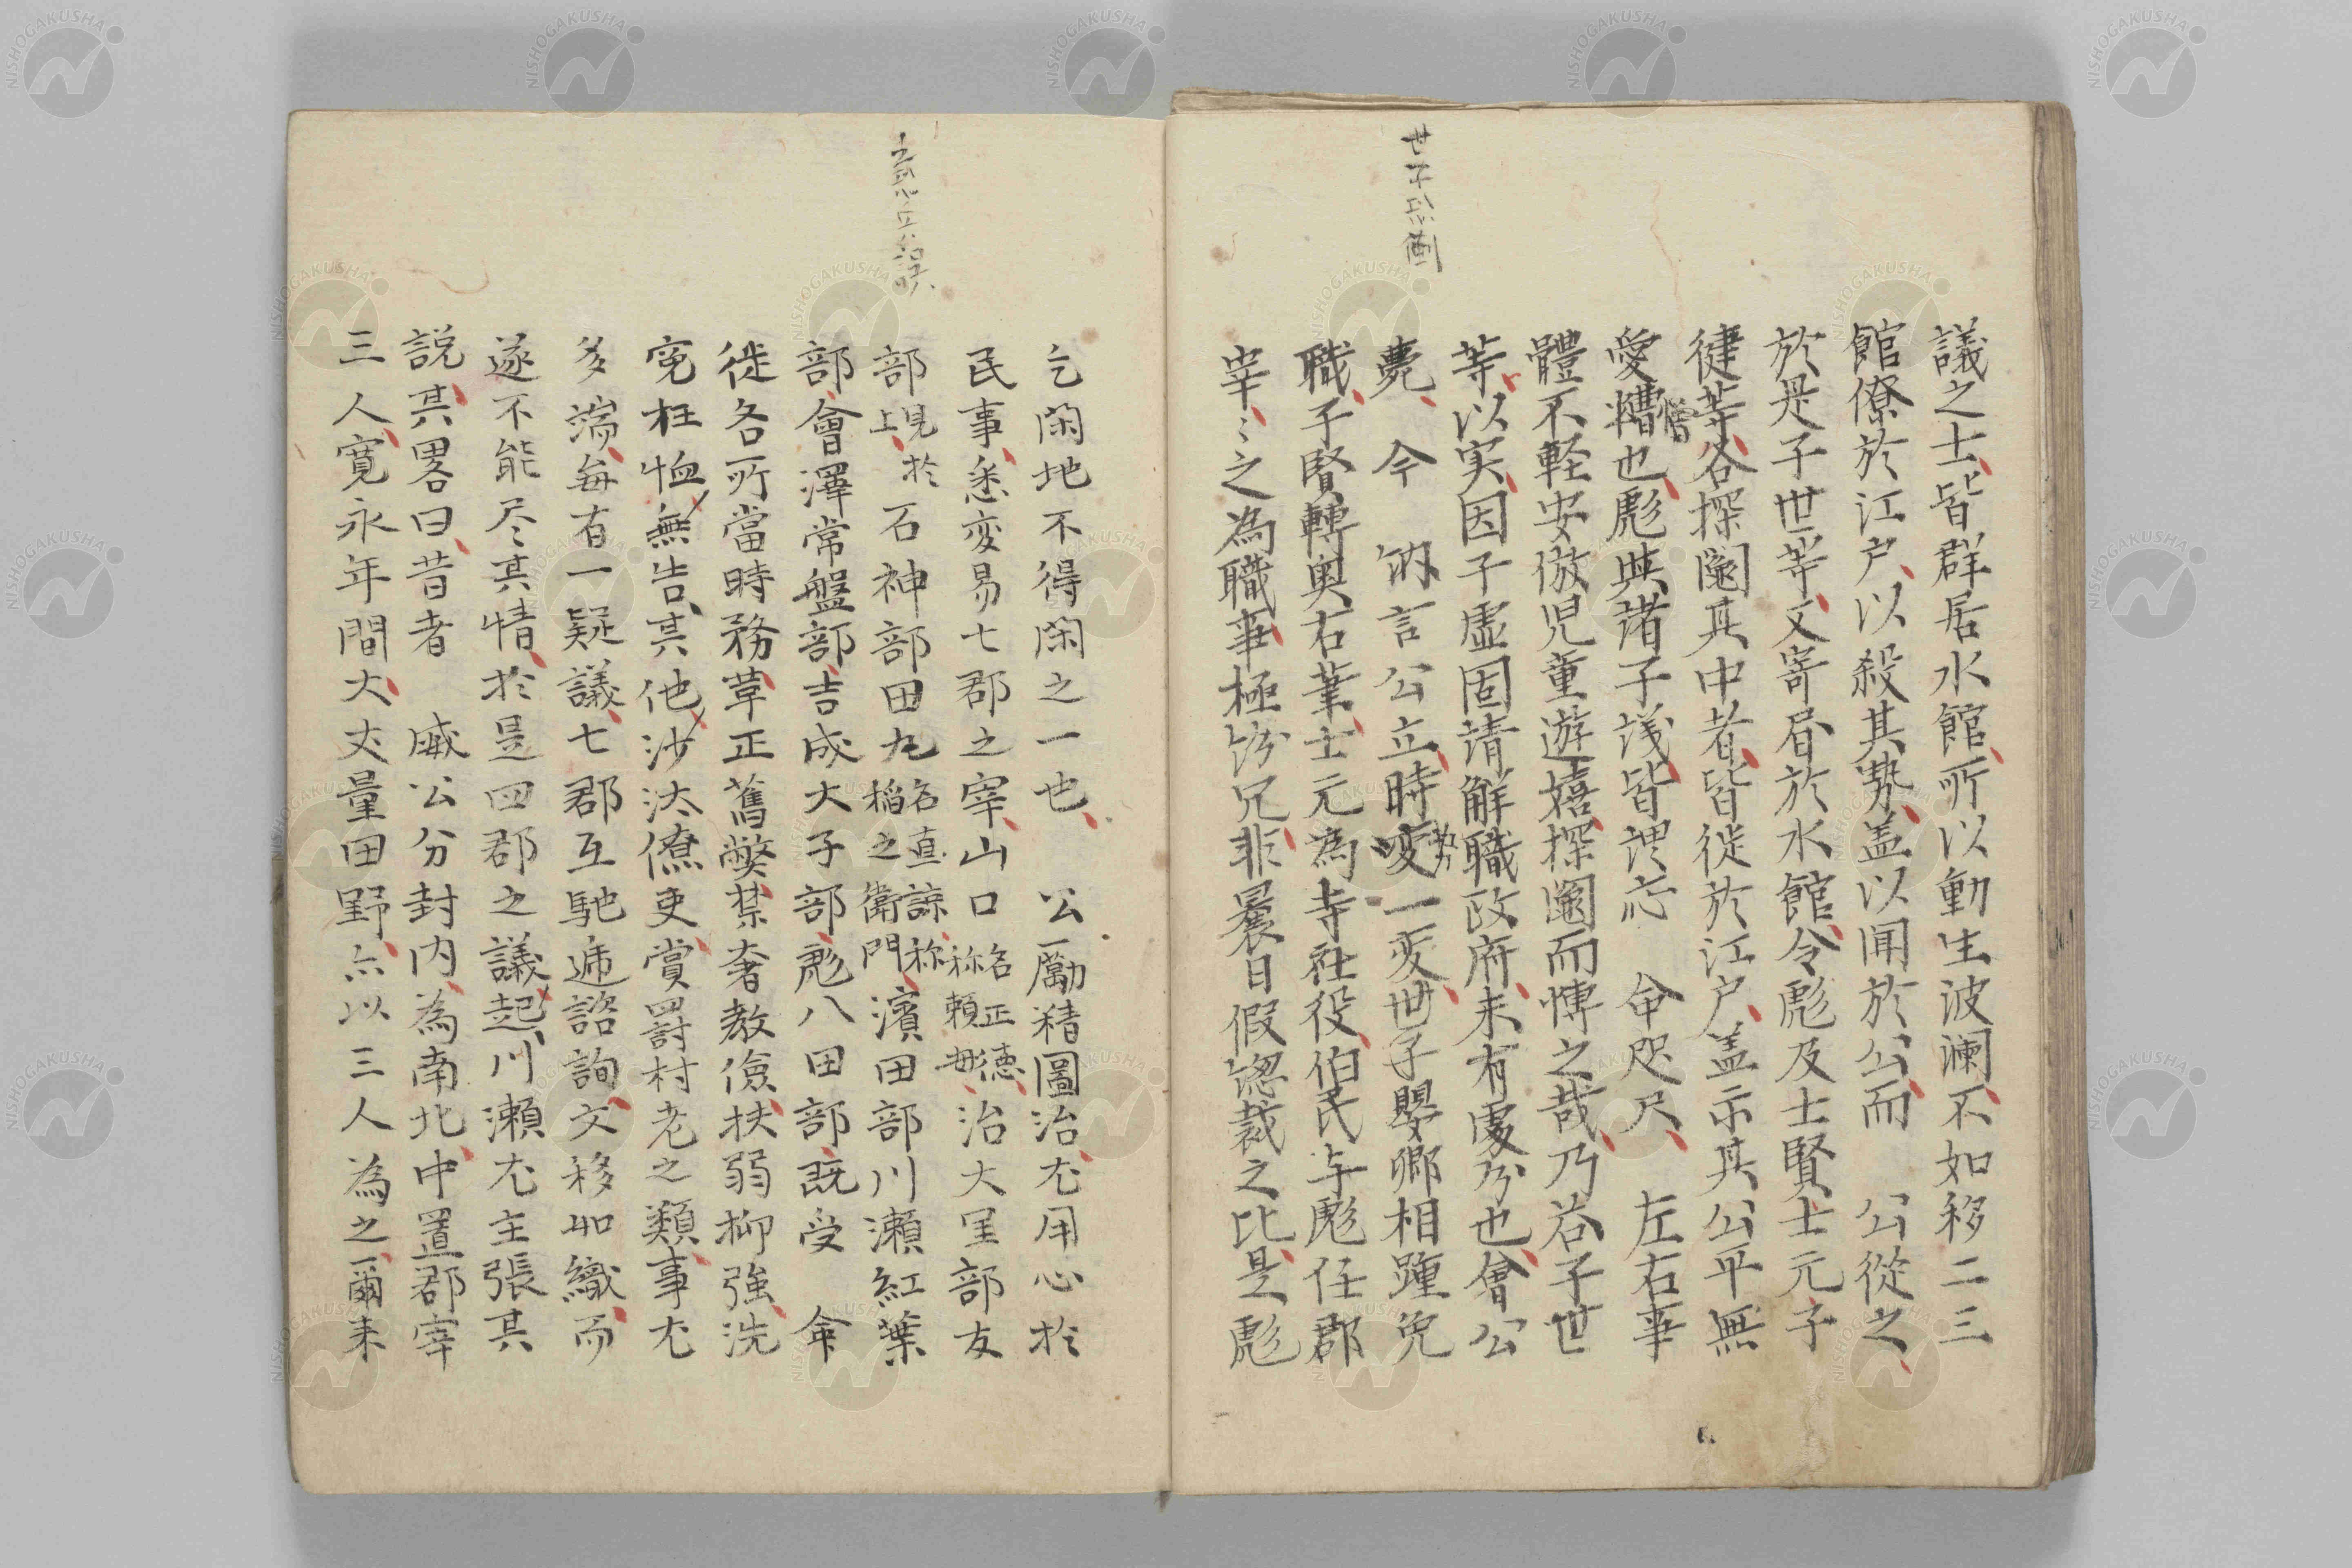 世子点画
議之士皆群居水館所以動生波瀾不如移二三
館僚於江戸以殺其勢盖以聞於公而　公従之
於是子世等又寄眉於水館令彪及士賢士元子
健等各探鬮其中者皆徙於江戸盖示其公平無
愛憎也彪与諸子議皆謂忝　命咫尺　左右事
憎
體不軽安倣児童遊嬉探鬮而慱之哉乃若子世
等以実因子虚固請解職政府未有処分也会公
薨　今　納言公立時変一変世子嬰卿相踵免
勢
職子賢轉奥右筆士元為寺社役伯民与彪任郡
宰々之為職事極
非曩日假
裁之比是彪
立
乞閑地不得閑之一也　公励精圖治尤用心於
民事悉変易七郡之宰山口 名正徳称頼母 治大里部友
部 見上 於石神部田丸 名直諒称稲之衛門 濱田部川瀬紅葉
部會澤常盤部吉成大子部彪八田部既受　命
徙各所當時務革正舊弊禁奢教倹扶弱抑強洗
寃枉恤無告其他沙汰僚吏賞罸村老之類事尤
多端毎有一疑議七郡互馳逓諮詢文移如織而
遂不能尽其情於是四郡之議起川瀬尤主張其
説其畧曰昔者　威公分封内為南北中置郡宰
三人寛永年間大丈量田野亦以三人為之爾来
NISHOGAKUSHA